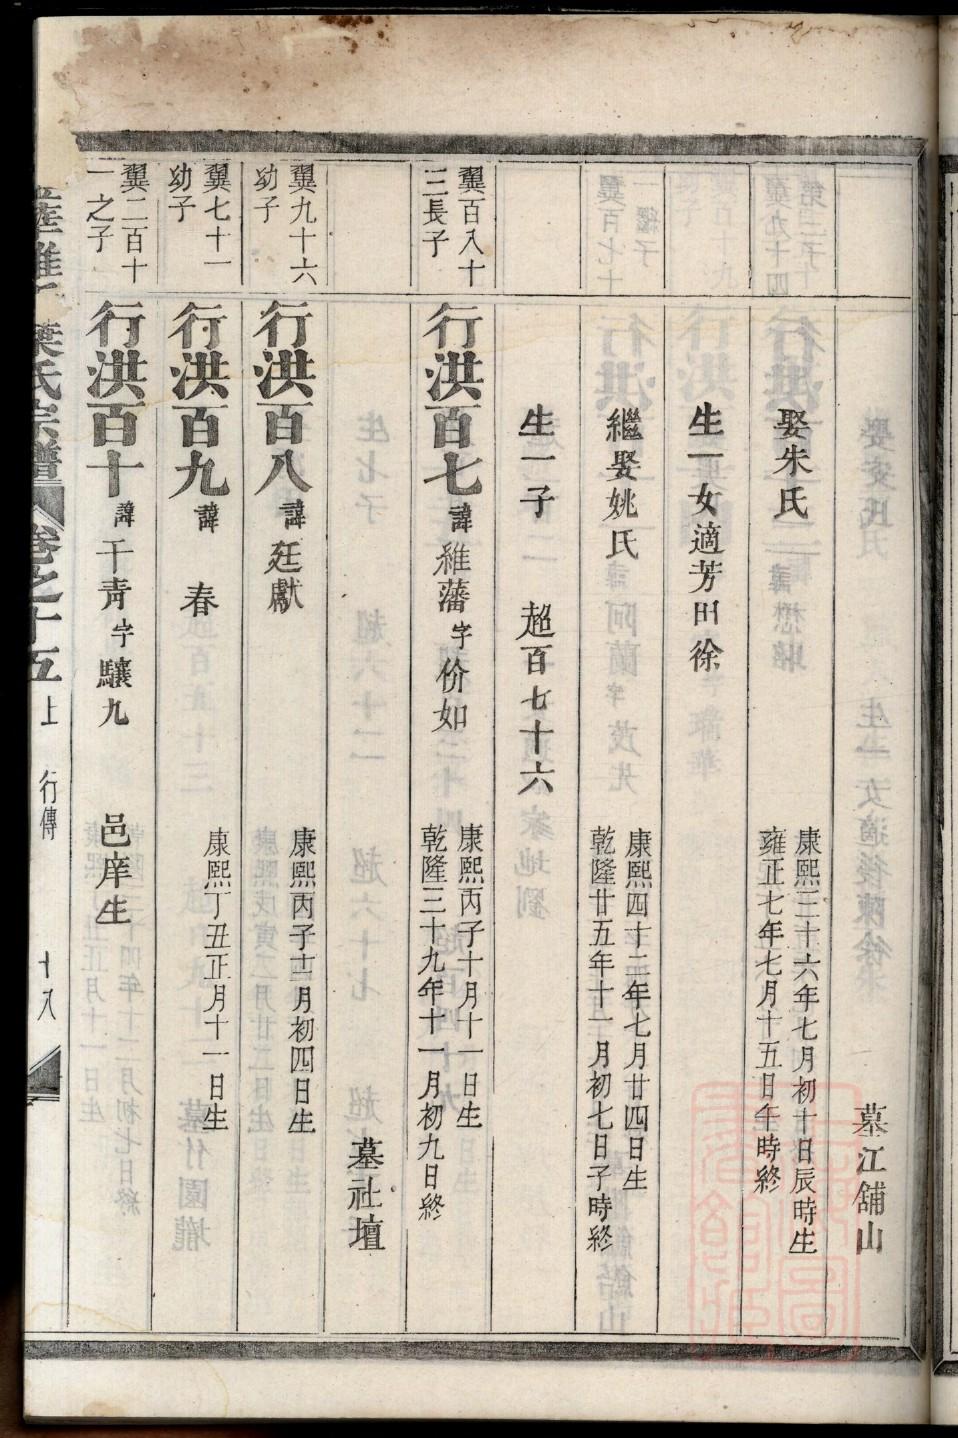 墓江舖山
娶朱氏
康熙三十六年七月初十日辰時生
雍正七年七月十五日午時終
生一女適芳田徐
繼娶姚氏
康熙四十二年七月廿四日生
乾隆廿五年十一月初七日子時終
生一子 超百七十六
翼百八十
三長子
行洪百七 諱維藩 字价如
康熙丙子十月十一日生
乾隆三十九年十一月初九日終
墓社壇
翼九十六
幼子
行洪百八 諱廷獻
康熙丙子十二月初四日生
翼七十一
幼子
行洪百九 諱春
康熙丁丑正月十一日生
翼二百十
一之子
行洪百十 諱干青 字驤九 邑庠生
葉氏宗譜 卷之十五 上 行傳 十八